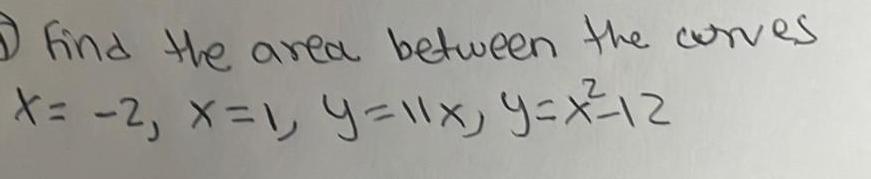 1) Find the area between the curves
x = -2, x = 1, y = 11x, y = x²-12